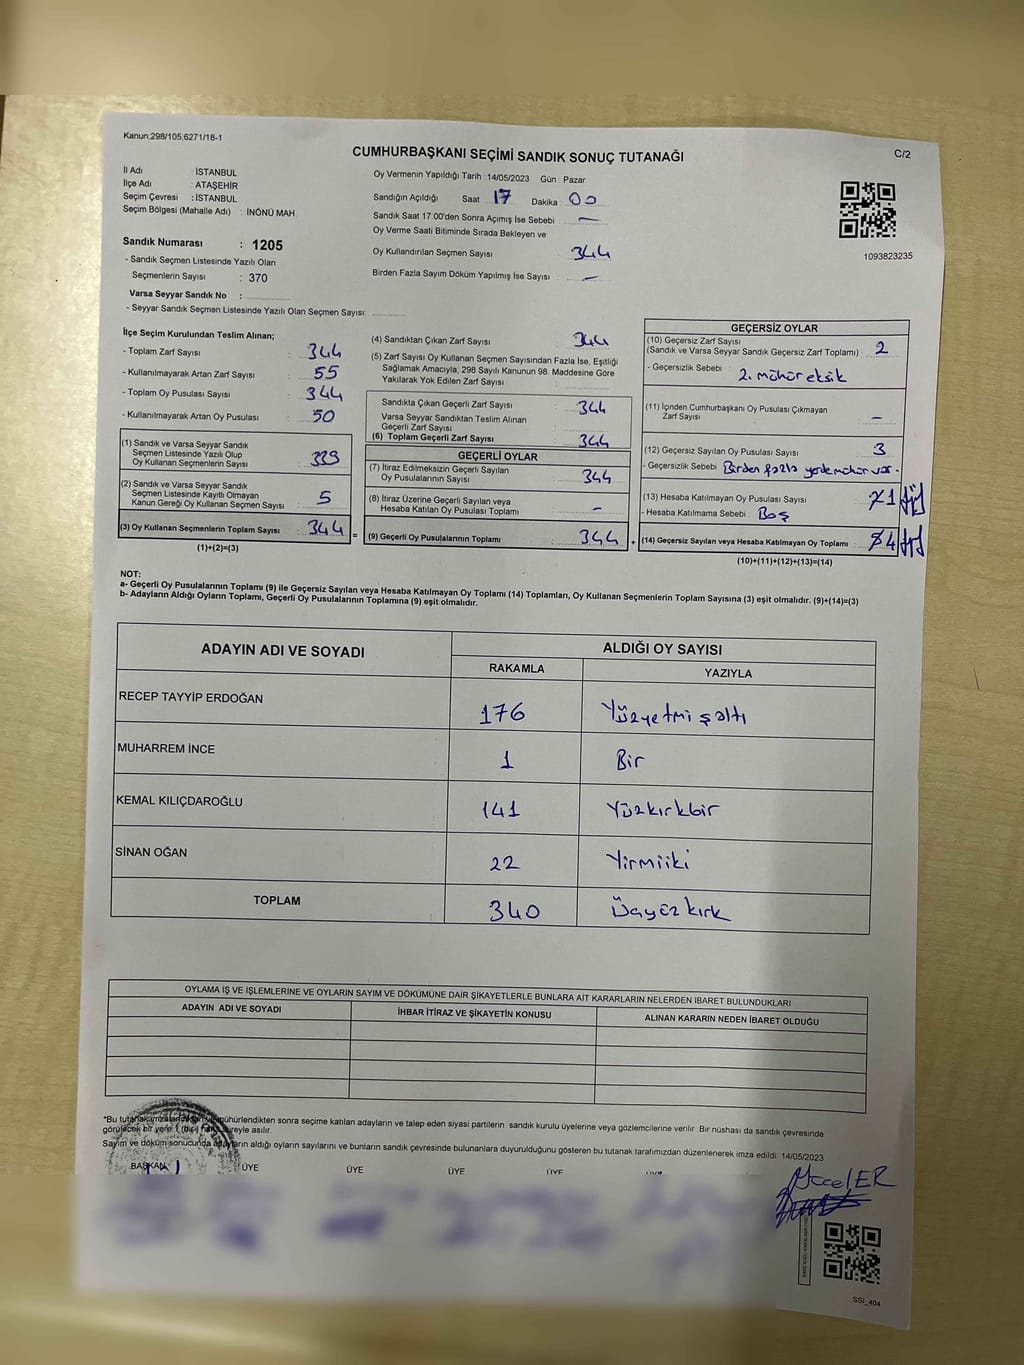 Kanun:298/105,6271/18-1
CUMHURBAŞKANI SEÇİMİ SANDIK SONUÇ TUTANAĞI
C/2
İl Adı : İSTANBUL
İlçe Adı : ATAŞEHİR
Seçim Çevresi : İSTANBUL
Seçim Bölgesi (Mahalle Adı) : İNÖNÜ MAH
Sandık Numarası : 1205
- Sandık Seçmen Listesinde Yazılı Olan
Seçmenlerin Sayısı : 370
Varsa Seyyar Sandık No :
- Seyyar Sandık Seçmen Listesinde Yazılı Olan Seçmen Sayısı:
Oy Vermenin Yapıldığı Tarih : 14/05/2023 Gün : Pazar
Sandığın Açıldığı Saat 17 Dakika 00
Sandık Saat 17:00'den Sonra Açımış İse Sebebi : —
Oy Verme Saati Bitiminde Sırada Bekleyen ve
Oy Kullandırılan Seçmen Sayısı : 344
Birden Fazla Sayım Döküm Yapılmış İse Sayısı : —
1093823235
İlçe Seçim Kurulundan Teslim Alınan;
- Toplam Zarf Sayısı : 344
- Kullanılmayarak Artan Zarf Sayısı : 55
- Toplam Oy Pusulası Sayısı : 344
- Kullanılmayarak Artan Oy Pusulası : 50
(1) Sandık ve Varsa Seyyar Sandık
Seçmen Listesinde Yazılı Olup
Oy Kullanan Seçmenlerin Sayısı : 339
(2) Sandık ve Varsa Seyyar Sandık
Seçmen Listesinde Kayıtlı Olmayan
Kanun Gereği Oy Kullanan Seçmen Sayısı : 5
(3) Oy Kullanan Seçmenlerin Toplam Sayısı : 344
(1)+(2)=(3)
(4) Sandıktan Çıkan Zarf Sayısı : 344
(5) Zarf Sayısı Oy Kullanan Seçmen Sayısından Fazla İse, Eşitliği
Sağlamak Amacıyla; 298 Sayılı Kanunun 98. Maddesine Göre
Yakılarak Yok Edilen Zarf Sayısı :
Sandıkta Çıkan Geçerli Zarf Sayısı : 344
Varsa Seyyar Sandıktan Teslim Alınan
Geçerli Zarf Sayısı :
(6) Toplam Geçerli Zarf Sayısı : 344
GEÇERLİ OYLAR
(7) İtiraz Edilmeksizin Geçerli Sayılan
Oy Pusulalarının Sayısı : 344
(8) İtiraz Üzerine Geçerli Sayılan veya
Hesaba Katılan Oy Pusulası Toplamı : —
= (9) Geçerli Oy Pusulalarının Toplamı : 344
GEÇERSİZ OYLAR
(10) Geçersiz Zarf Sayısı
(Sandık ve Varsa Seyyar Sandık Geçersiz Zarf Toplamı) : 2
- Geçersizlik Sebebi : 2. mühür eksik
(11) İçinden Cumhurbaşkanı Oy Pusulası Çıkmayan
Zarf Sayısı : —
(12) Geçersiz Sayılan Oy Pusulası Sayısı : 3
- Geçersizlik Sebebi : Birden fazla yerde mühür var.
(13) Hesaba Katılmayan Oy Pusulası Sayısı : 1
- Hesaba Katılmama Sebebi : Boş
+ (14) Geçersiz Sayılan veya Hesaba Katılmayan Oy Toplamı : 4
(10)+(11)+(12)+(13)=(14)
NOT:
a- Geçerli Oy Pusulalarının Toplamı (9) ile Geçersiz Sayılan veya Hesaba Katılmayan Oy Toplamı (14) Toplamları, Oy Kullanan Seçmenlerin Toplam Sayısına (3) eşit olmalıdır. (9)+(14)=(3)
b- Adayların Aldığı Oyların Toplamı, Geçerli Oy Pusulalarının Toplamına (9) eşit olmalıdır.
ADAYIN ADI VE SOYADI ALDIĞI OY SAYISI
RAKAMLA YAZIYLA
RECEP TAYYİP ERDOĞAN 176 Yüzyetmişaltı
MUHARREM İNCE 1 Bir
KEMAL KILIÇDAROĞLU 141 Yüzkırkbir
SİNAN OĞAN 22 Yirmiiki
TOPLAM 340 Üçyüzkırk
OYLAMA İŞ VE İŞLEMLERİNE VE OYLARIN SAYIM VE DÖKÜMÜNE DAİR ŞİKAYETLERLE BUNLARA AİT KARARLARIN NELERDEN İBARET BULUNDUKLARI
ADAYIN ADI VE SOYADI İHBAR İTİRAZ VE ŞİKAYETİN KONUSU ALINAN KARARIN NEDEN İBARET OLDUĞU
*Bu mühürlendikten sonra seçime katılan adayların ve talep eden siyasi partilerin sandık kurulu üyelerine veya gözlemcilerine verilir. Bir nüshası da sandık çevresinde
görülecek bir yere 1 (bir) hafta süreyle asılır.
Sayım ve döküm sonucunda adayların aldığı oyların sayılarını ve bunların sandık çevresinde bulunanlara duyurulduğunu gösteren bu tutanak tarafımızdan düzenlenerek imza edildi. 14/05/2023
BAŞKAN ÜYE ÜYE ÜYE ÜYE
SSİ_404